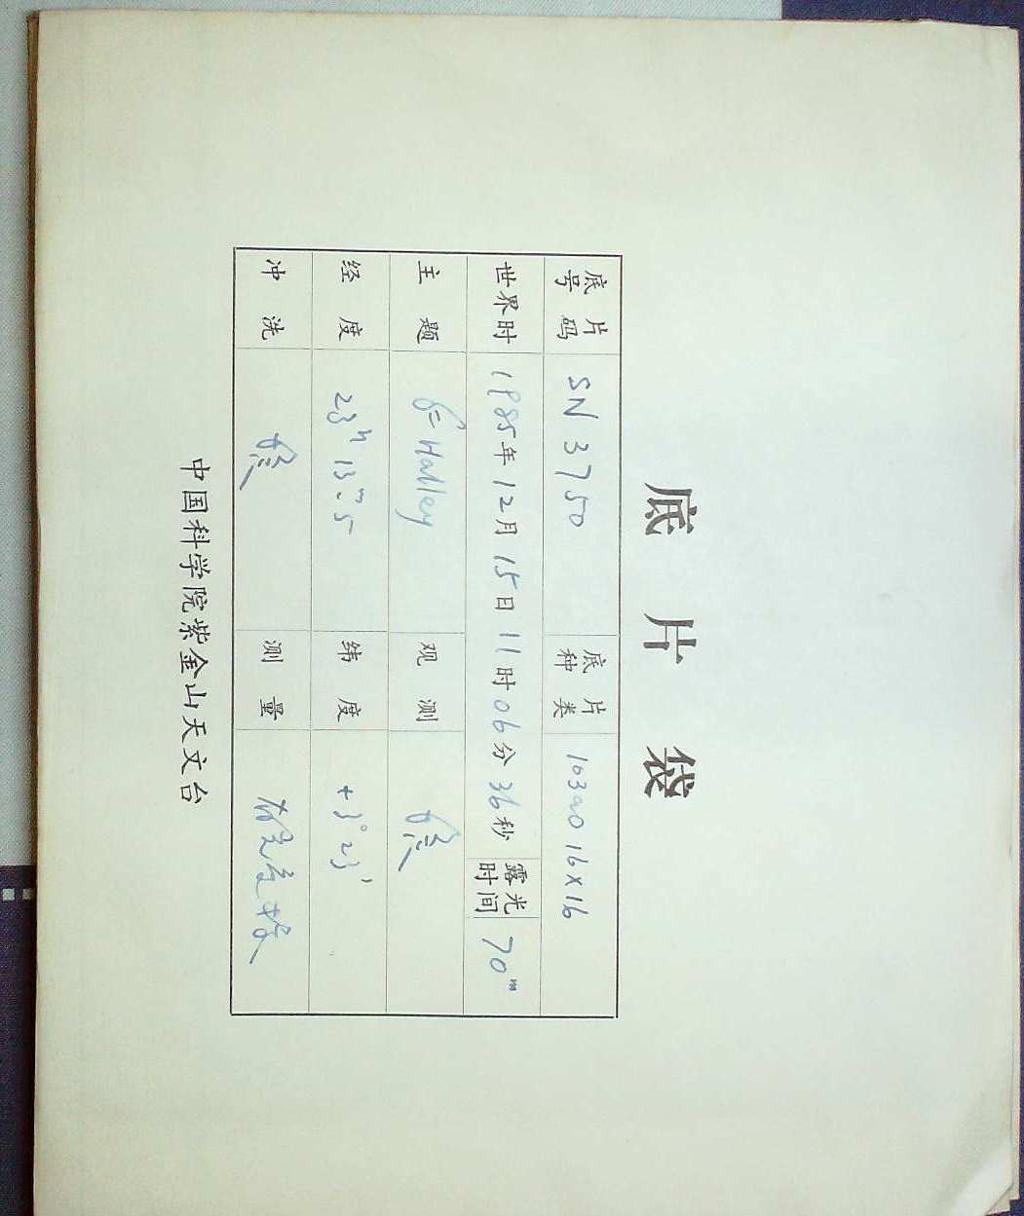 底片袋
底片号码 SN 3750 底片种类 103aO 16×16
世界时 1985年12月15日11时06分36秒 露光时间 70m
主题 Halley 观测
经度 23h 13m.5 纬度 +3°23′
冲洗 测量
中国科学院紫金山天文台